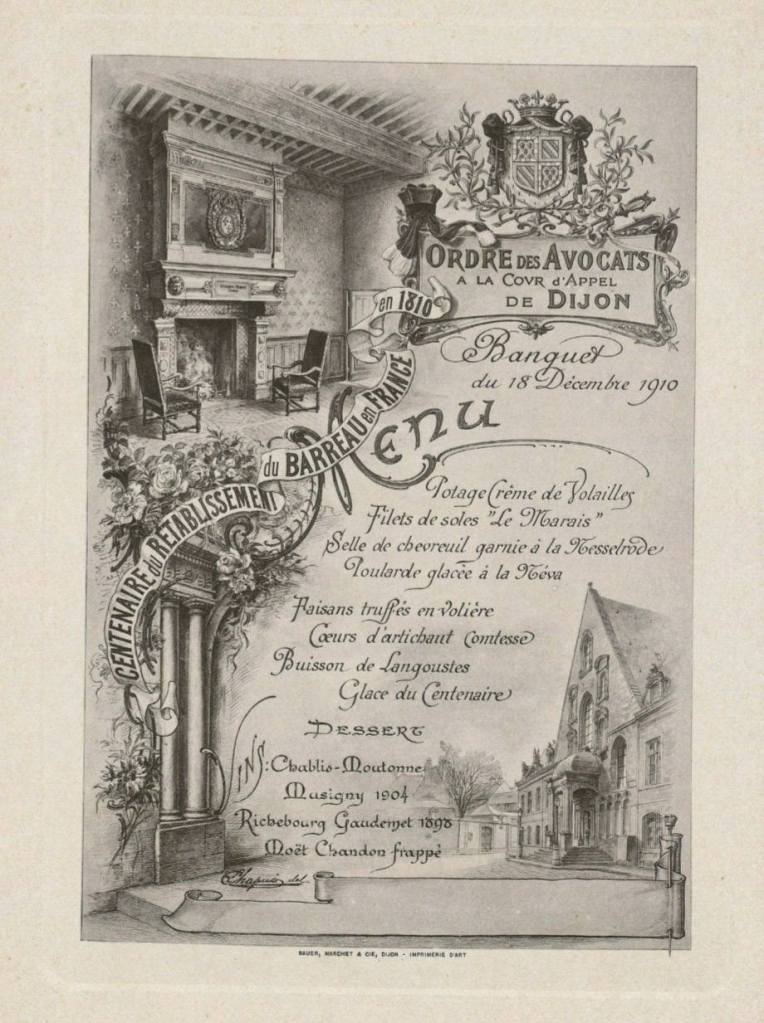 ORDRE DES AVOCATS
A LA COVR d'APPEL
DE DIJON
CENTENAIRE du RETABLISSEMENT du BARREAU en FRANCE en 1810
Banquet
du 18 Décembre 1910
MENU
Potage Crême de Volailles
Filets de soles "Le Marais"
Selle de chevreuil garnie à la Nesselrode
Poularde glacée à la Néva
Faisans truffés en volière
Cœurs d'artichaut Comtesse
Buisson de Langoustes
Glace du Centenaire
DESSERT
VINS: Chablis-Moutonne
Musigny 1904
Richebourg Gaudemet 1898
Moët Chandon frappé
Chapuis del
BAUER, MARCHET & CIE, DIJON - IMPRIMERIE D'ART